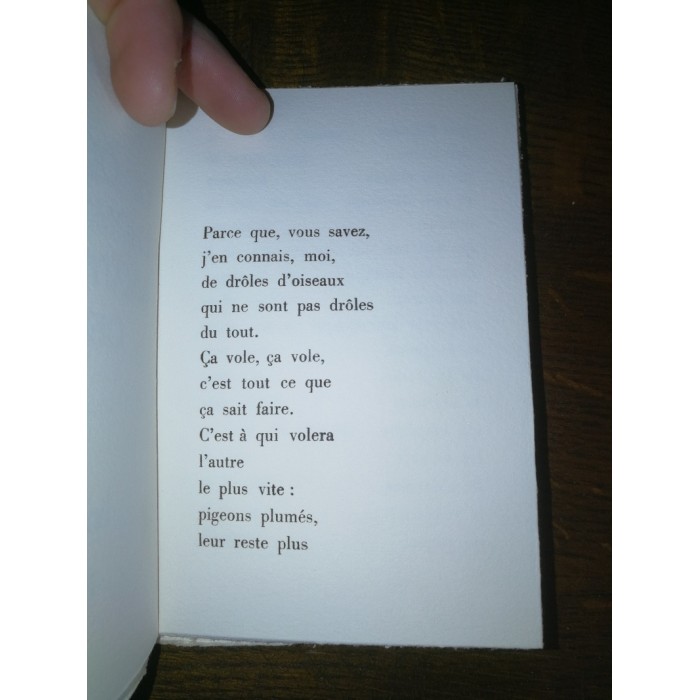 Parce que, vous savez,
j'en connais, moi,
de drôles d'oiseaux
qui ne sont pas drôles
du tout.
Ça vole, ça vole,
c'est tout ce que
ça sait faire.
C'est à qui volera
l'autre
le plus vite :
pigeons plumés,
leur reste plus